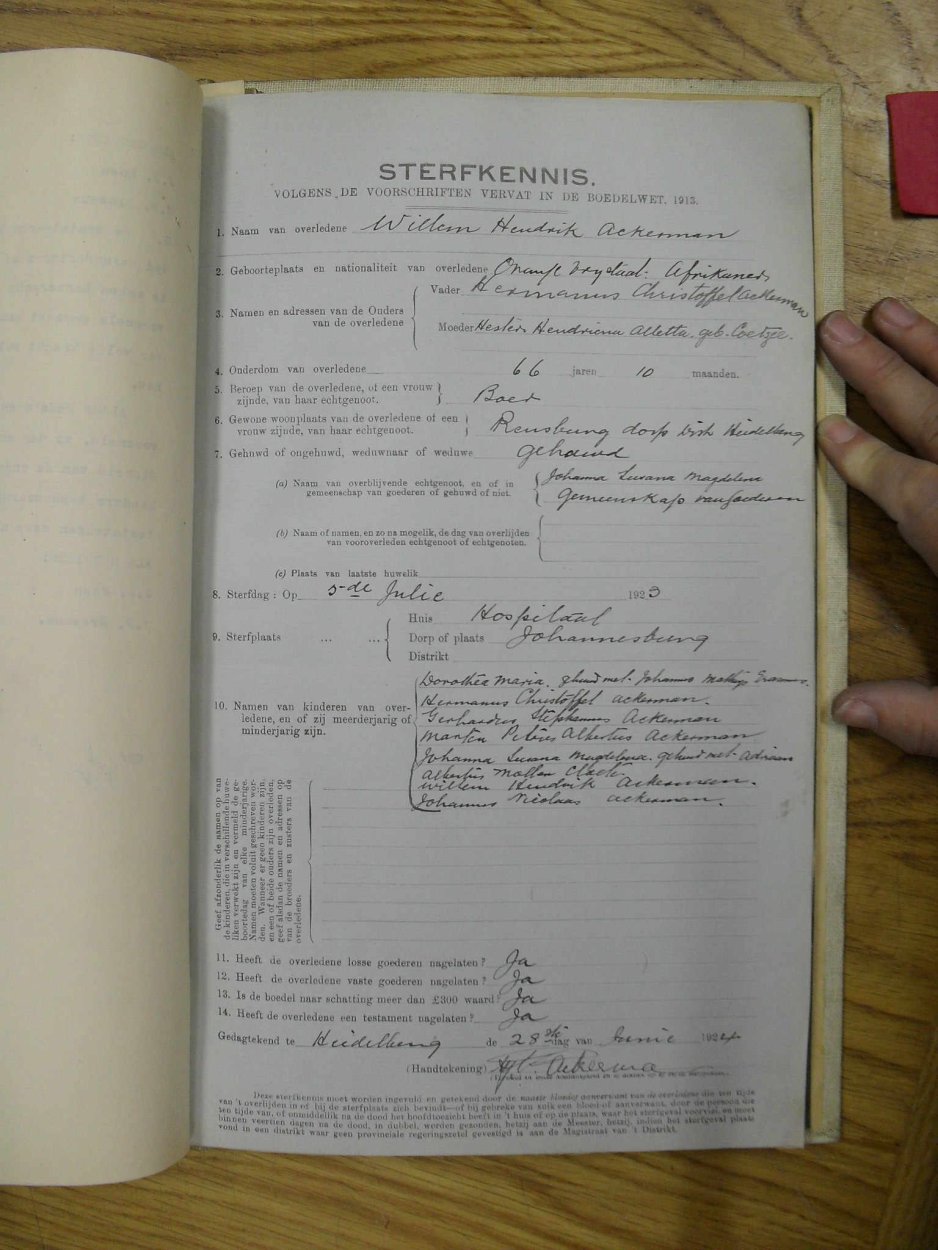 STERFKENNIS.
VOLGENS DE VOORSCHRIFTEN VERVAT IN DE BOEDELWET, 1913.
1. Naam van overledene Willem Hendrik Ackerman
2. Geboorteplaats en nationaliteit van overledene Oranje Vrystaat. Afrikaner
3. Namen en adressen van de Ouders van de overledene
Vader Hermanus Christoffel Ackerman
Moeder Hester Hendriena Alletta. geb. Coetzee.
4. Onderdom van overledene 66 jaren 10 maanden.
5. Beroep van de overledene, of een vrouw
zijnde, van haar echtgenoot. Boer
6. Gewone woonplaats van de overledene of een
vrouw zijnde, van haar echtgenoot. Rensburg dorp Distr Heidelberg
7. Gehuwd of ongehuwd, weduwnaar of weduwe gehouwd
(a) Naam van overblijvende echtgenoot, en of in
gemeenschap van goederen of gehuwd of niet.
Johanna Susana Magdelena
gemeenskap van goederen
(b) Naam of namen, en zo na mogelik, de dag van overlijden
van vooroverleden echtgenoot of echtgenoten.
(c) Plaats van laatste huwelik
8. Sterfdag : Op 5-de Julie 1923
9. Sterfplaats ... ...
Huis Hospitaal
Dorp of plaats Johannesburg
Distrikt
10. Namen van kinderen van over-
ledene, en of zij meerderjarig of
minderjarig zijn.
Dorothea Maria. gehuud met. Johannes Mathys Erasmus.
Hermanus Christoffel Ackerman.
Gerhardus Stephanus Ackerman
Marten Petrus Albertus Ackerman
Johanna Susana Magdelena. gehuud met. Adriaan
Albertus
Willem Hendrik Ackerman.
Johannes Nicolaas Ackerman.
Geef afzonderlik de namen op van
de kinderen, die in verschillende huwe-
liken verwekt zijn en vermeld de ge-
boortedag van elke minderjarige.
Namen moeten voluit geschreven wor-
den. Wanneer er geen kinderen zijn,
en een of beide ouders zijn overleden,
geef alsdan de namen en adressen op
van de broeders en zusters van de
overledene.
11. Heeft de overledene losse goederen nagelaten ? Ja
12. Heeft de overledene vaste goederen nagelaten ? Ja
13. Is de boedel naar schatting meer dan £300 waard ? Ja
14. Heeft de overledene een testament nagelaten ? Ja
Gedagtekend te Heidelberg de 28ste dag van Junie 1924
(Handtekening) Ackerma
Deze sterfkennis moet worden ingevuld en getekend door de naaste bloedig aanverwant van de overledene die ten tijde
van 't overlijden in of bij de sterfplaats zich bevindt—of bij gebreke van zulk een bloed of aanverwant, door de persoon die
ten tijde van, of onmiddellik na de dood het hoofdtoezicht heeft in 't huis of op de plaats, waar het sterfgeval voorviel, en moet
binnen veertien dagen na de dood, in dubbel, worden gezonden, hetzij aan de Meester, hetzij, indien het sterfgeval plaats
vond in een distrikt waar geen provinciale regeringszetel gevestigd is aan de Magistraat van 't Distrikt.